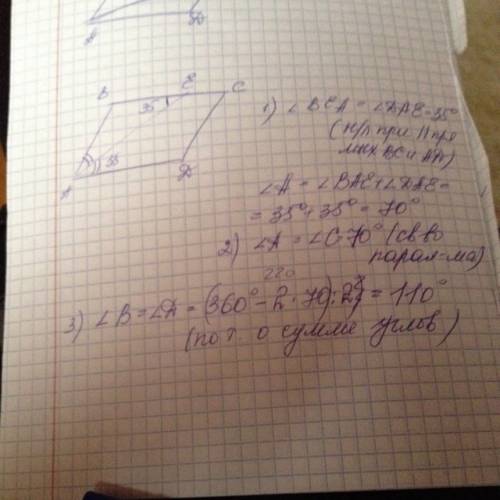 A D
B E C
35
35
A D
1) ∠BEA = ∠DAE=35°
(н/л при || пря
мых BC и AD)
∠A = ∠BAE+∠DAE=
= 35°+35° = 70°
2) ∠A = ∠C=70° (св во
парал-ма)
220
3) ∠B=∠D = (360°-2·70):2 = 110°
(по т. о сумме углов)